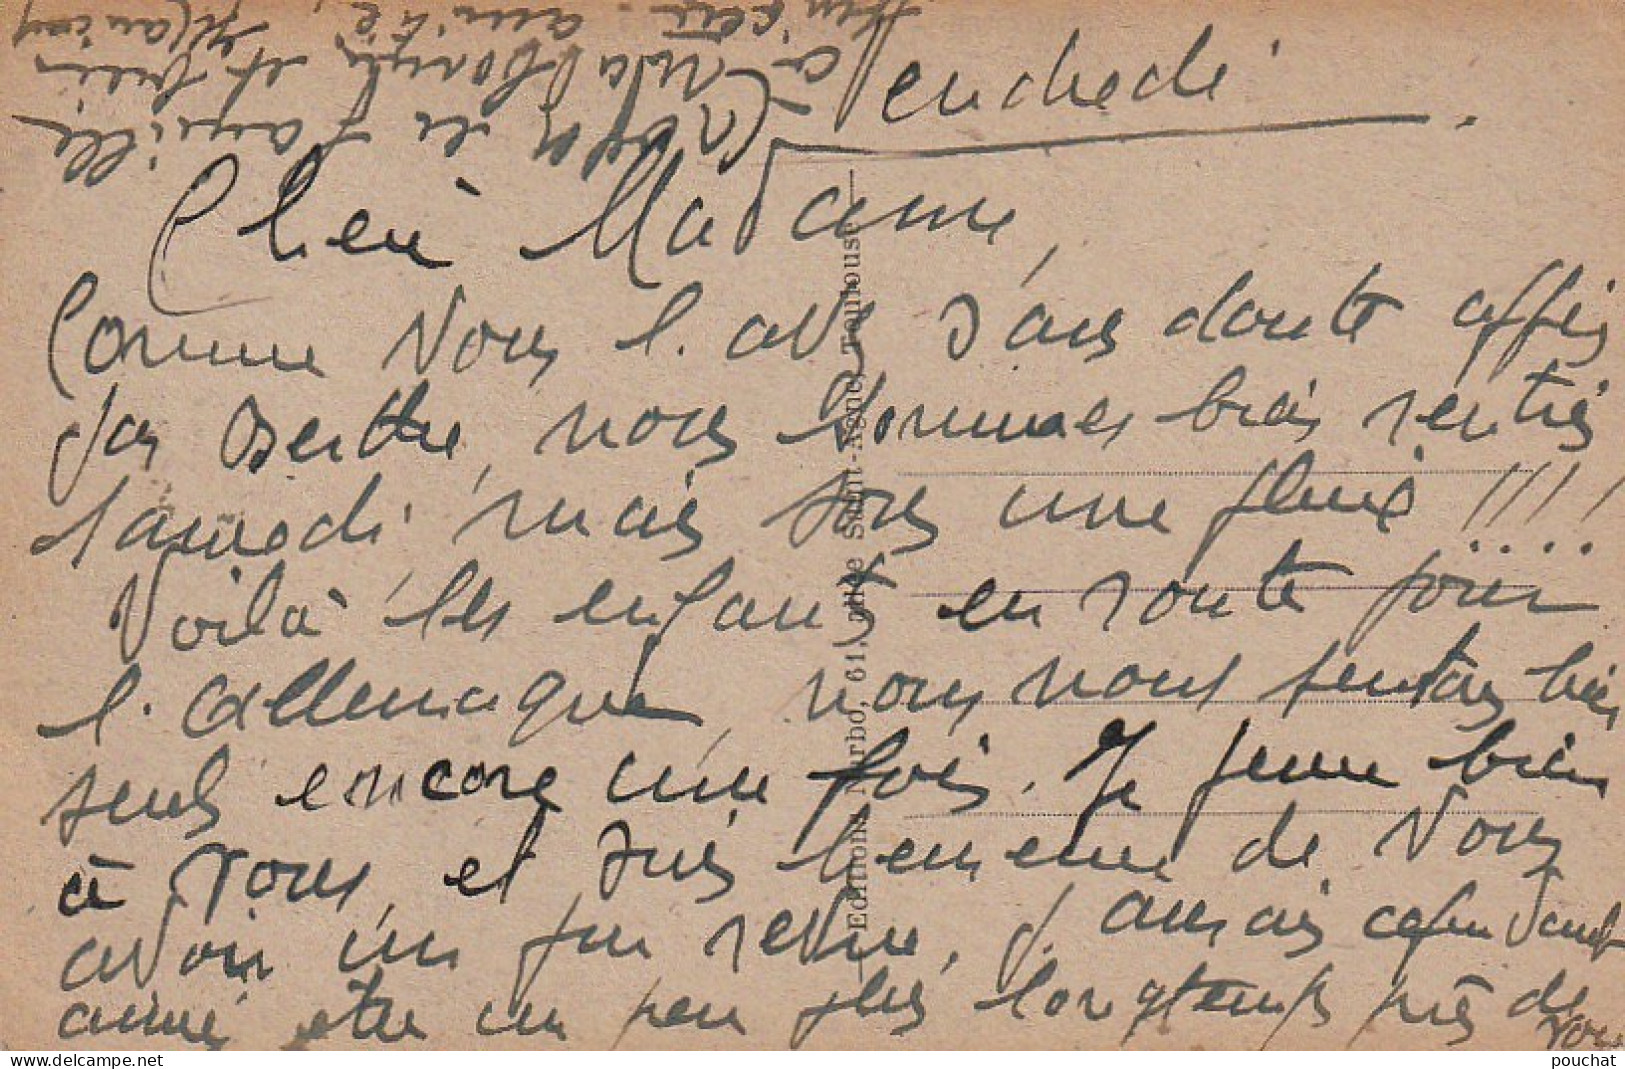 Vendredi.
Chère Madame,
Comme vous l'avez sans doute appris
par Berthe, nous sommes bien rentrés
samedi mais sous une pluie !!!!
Voilà les enfants en route pour
l'allemagne, nous nous sentons bien
seuls encore une fois. Je pense bien
à vous, et suis heureuse de vous
avoir un peu revue, j'aurais cependant
aimé être un peu plus longtemps près de
vous
à
la famille
et
amitié,
Editions Narbo, 61, allée Saint-Agne, Toulouse
delcampe.net
pouchat